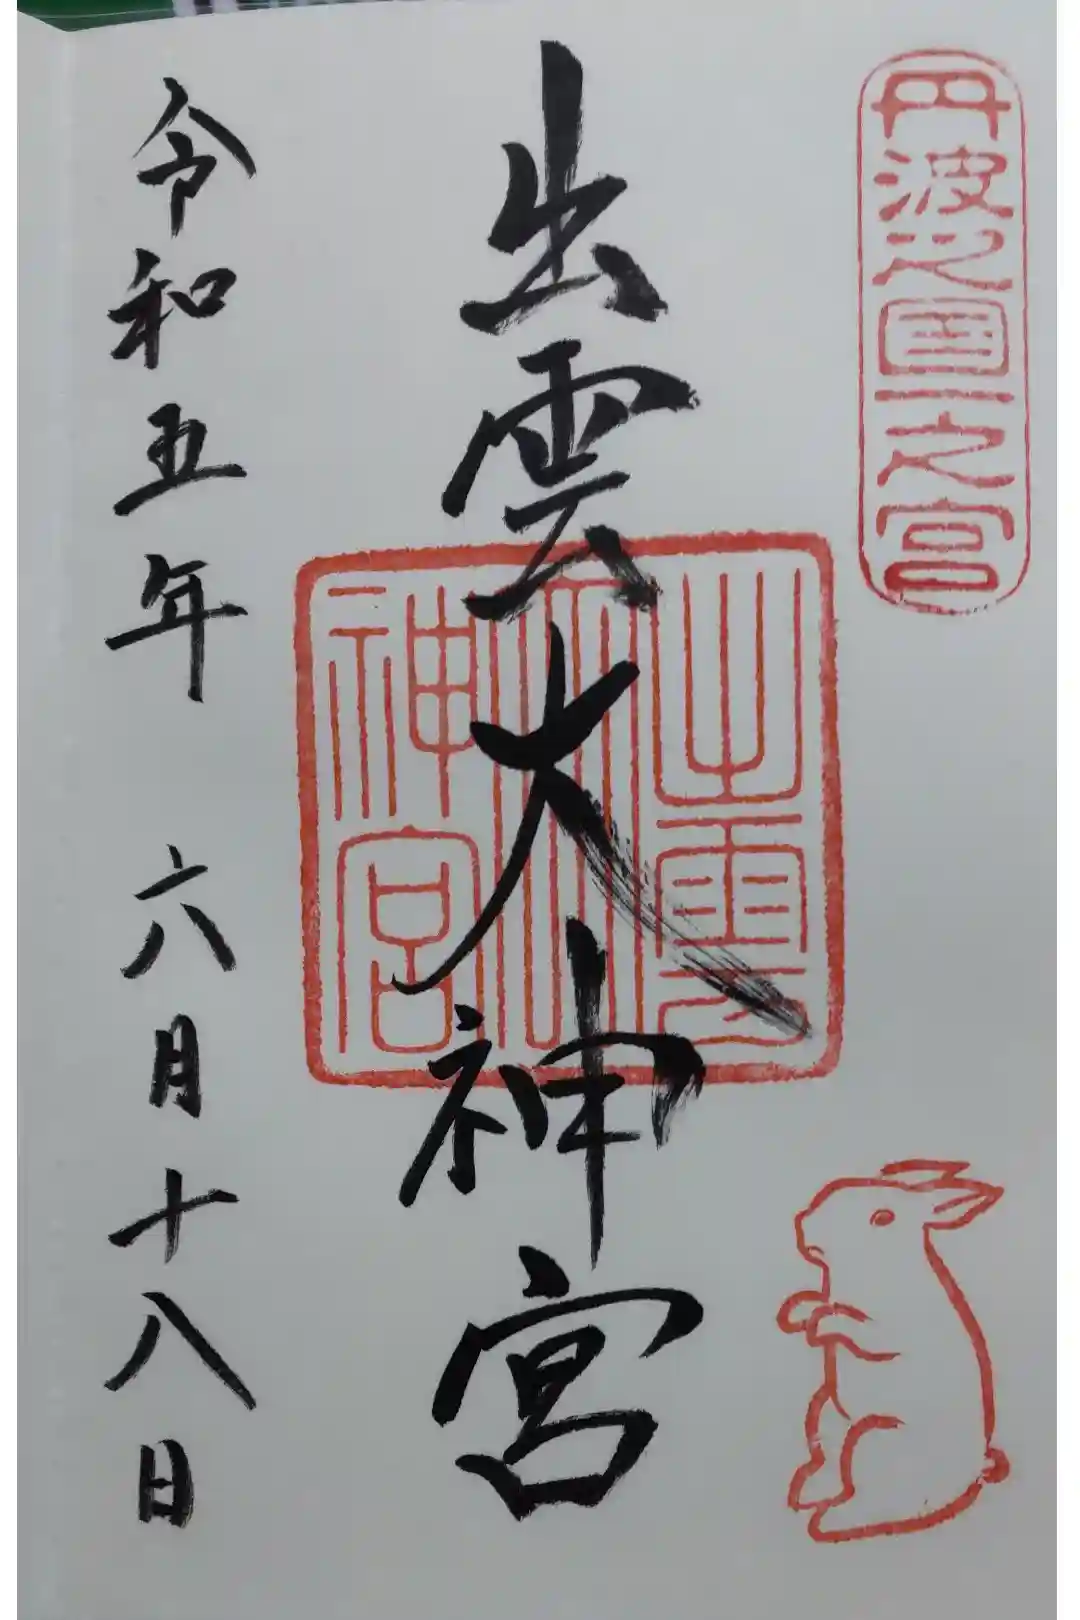 丹波之國一之宮
出雲大神宮
出雲大神宮
令和五年 六月十八日